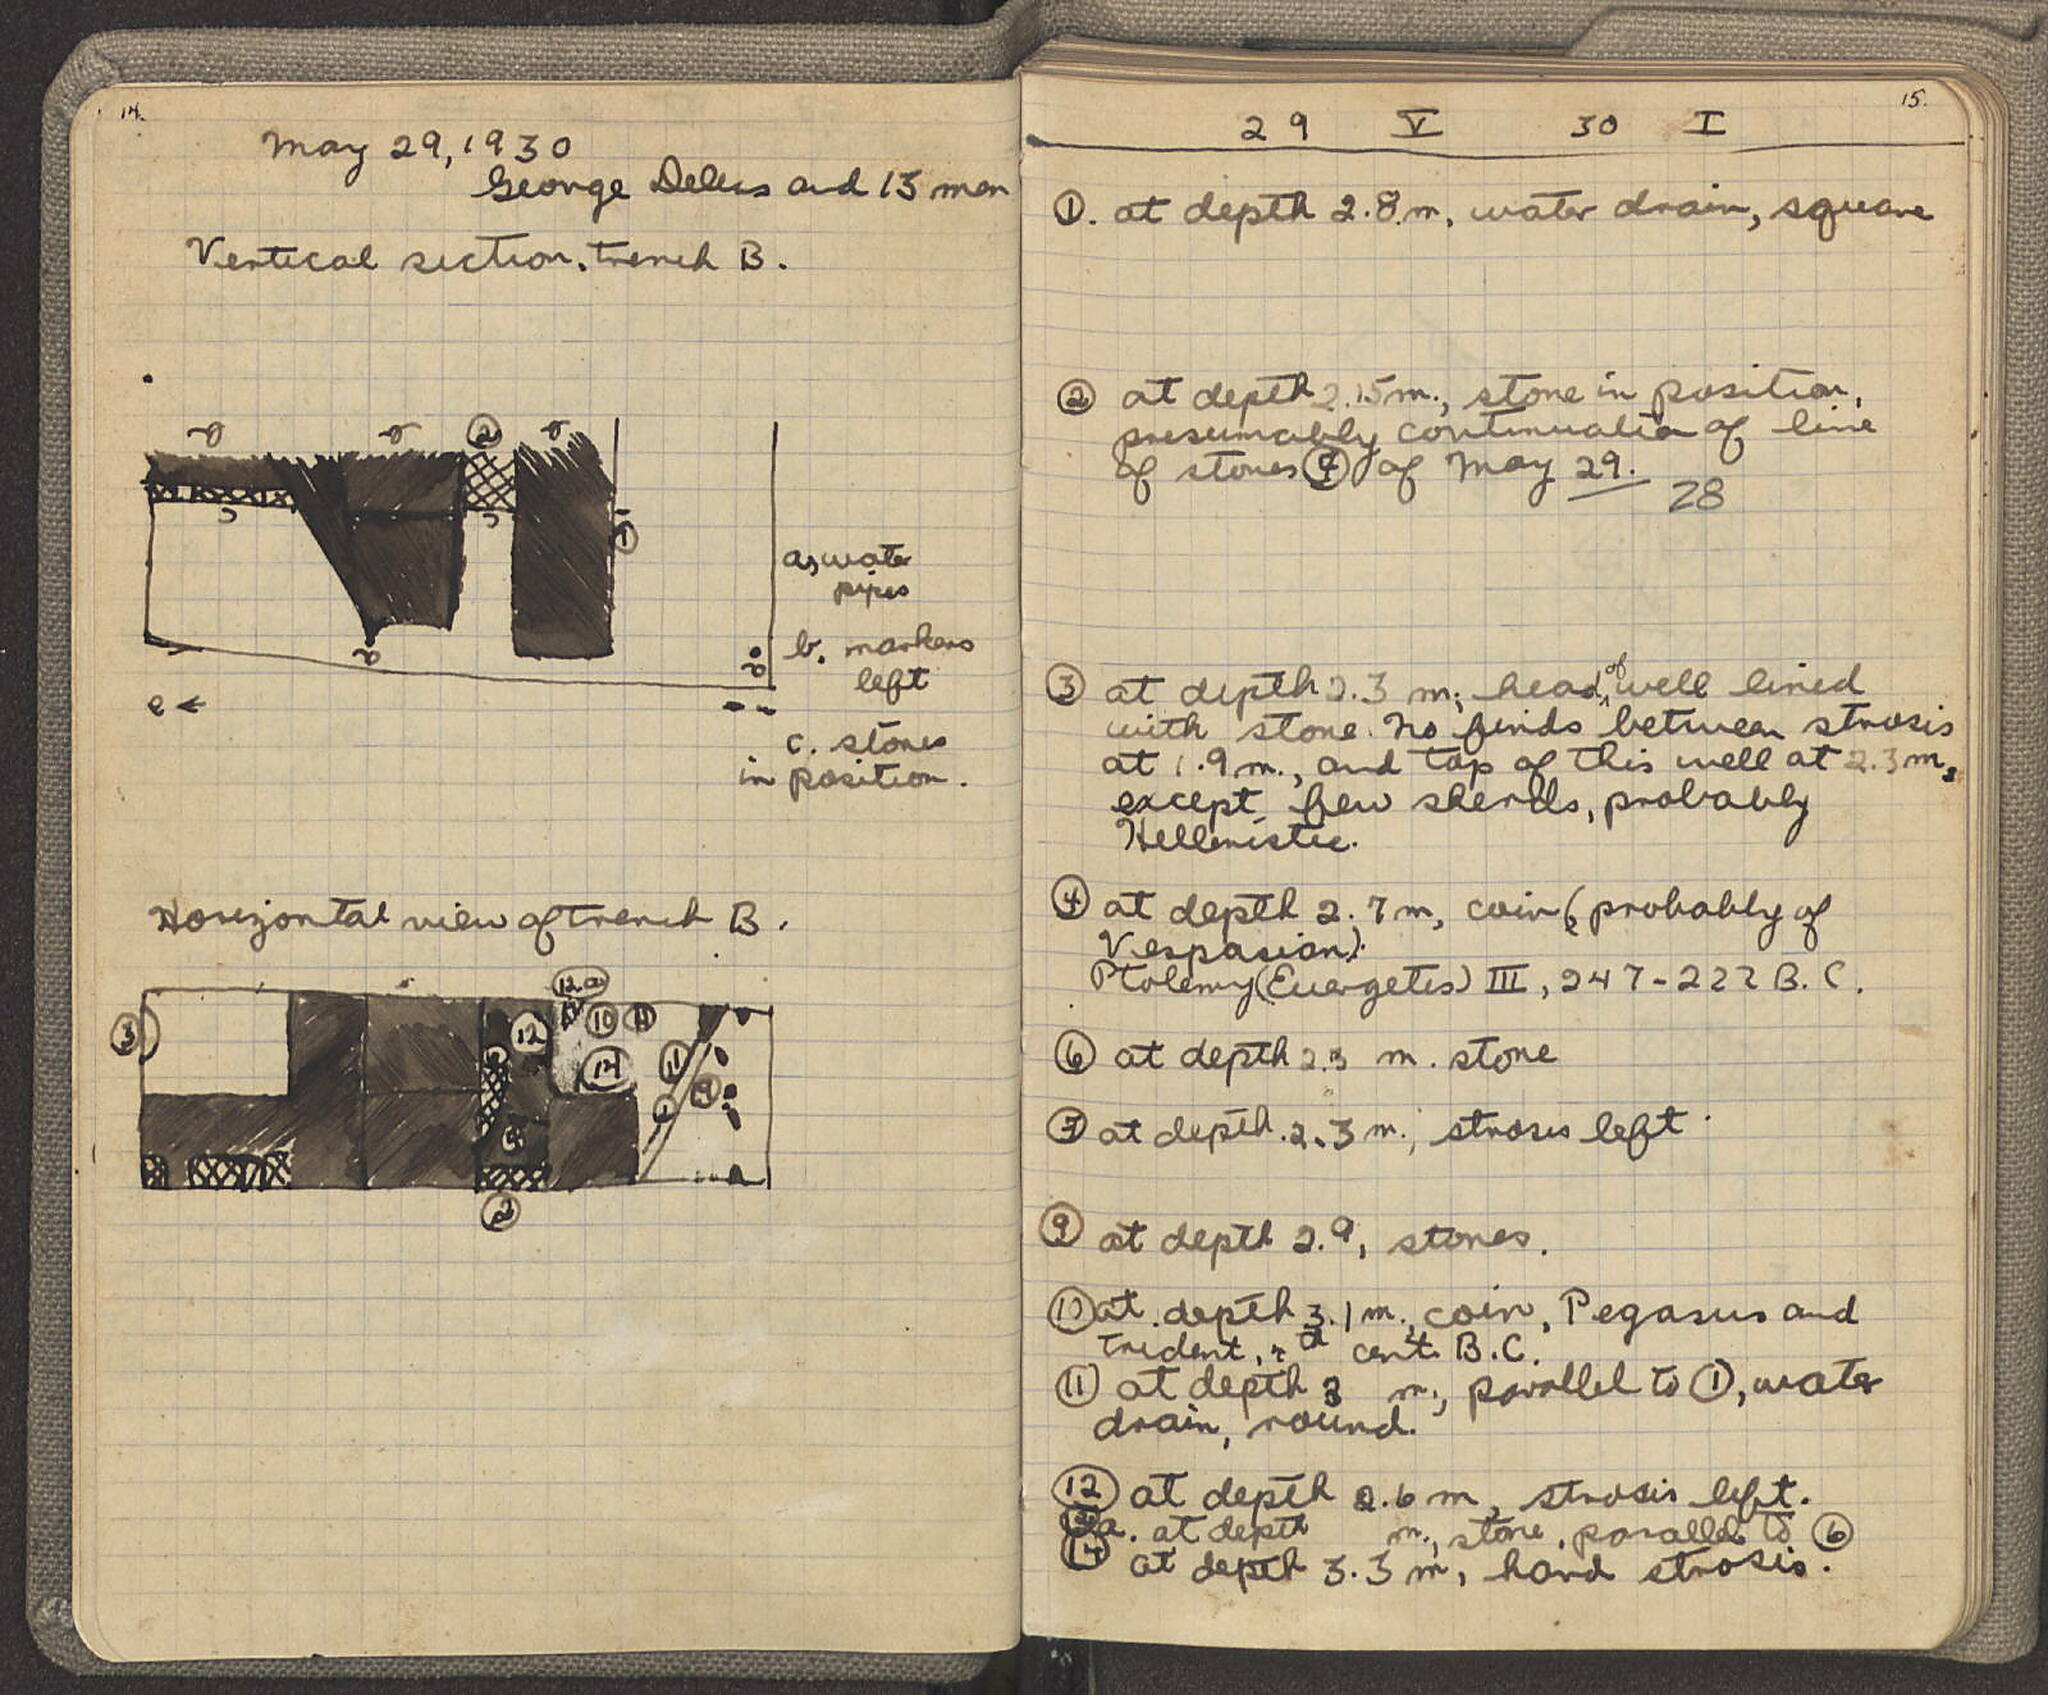 14.
May 29, 1930
George Deleas and 13 men
Vertical section, trench B.
②
①
a, water
pipes
b. markers
left
c. stones
in position.
Horizontal view of trench B.
12a
3
12
10
11
14
11
9
1
2
15.
29 V 30 I
①. at depth 2.8 m, water drain, square
② at depth 2.15 m., stone in position,
presumably continuation of line
of stones of May 29.
28
③ at depth 2.3 m; head of well lined
with stone. No finds between strosis
at 1.9 m., and top of this well at 2.3 m,
except few sherds, probably
Hellenistic.
④ at depth 2.7 m, coin (probably of
Vespasian).
Ptolemy (Euergetes) III, 247-222 B.C.
⑥ at depth 2.3 m. stone
⑦ at depth 2.3 m., strosis left
⑨ at depth 2.9, stones.
⑩ at depth 3.1 m., coin, Pegasus and
Trident, cent. B.C.
⑪ at depth 3 m; parallel to ①, water
drain, round.
⑫ at depth 2.6 m, strosis left.
12a. at depth m., stone, parallel to ⑥
⑭ at depth 3.3 m, hard strosis.